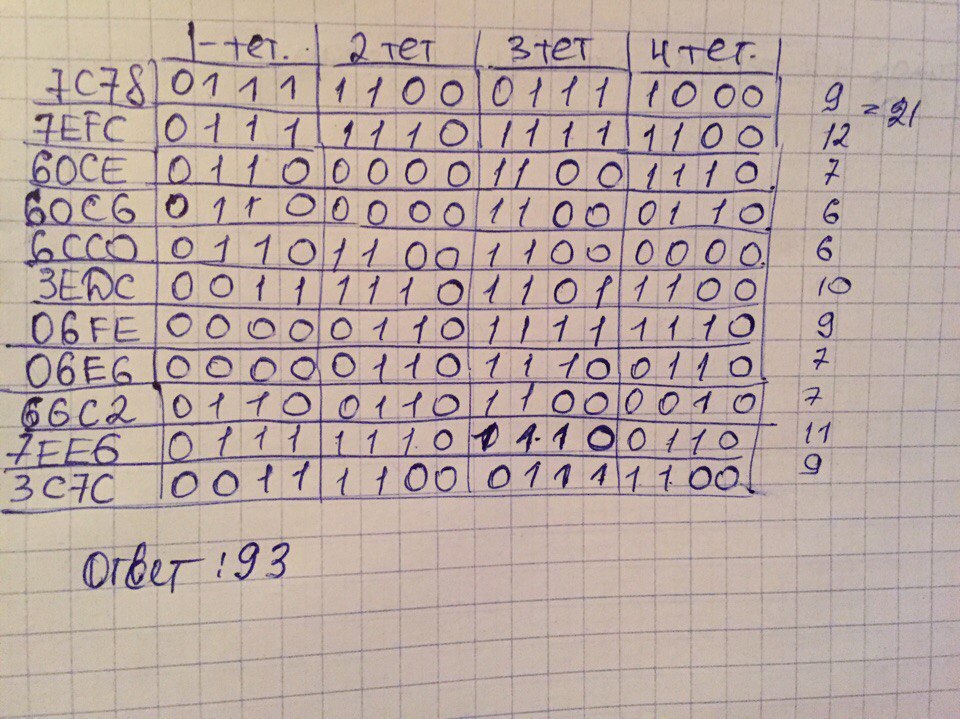 1-тет. 2 тет 3 тет 4 тет.
7C78 0111 1100 0111 1000 9 = 21
7EFC 0111 1110 1111 1100 12
60CE 0110 0000 1100 1110 7
60C6 0110 0000 1100 0110 6
6CC0 0110 1100 1100 0000 6
3EDC 0011 1110 1101 1100 10
06FE 0000 0110 1111 1110 9
06E6 0000 0110 1110 0110 7
66C2 0110 0110 1100 0010 7
7EE6 0111 1110 1110 0110 11
3C7C 0011 1100 0111 1100 9
Ответ : 93